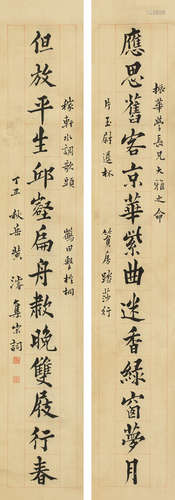 振華學長兄大雅之命
應思舊客京華紫曲迷香綠窗夢月
片玉尉遲杯 篔房踏莎行
稼軒水調歌頭 鶴田
但放平生邱壑扁舟敹晚雙屐行春
丁丑秋岳黃濬集宋詞